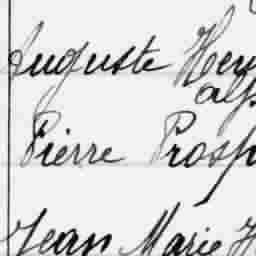 Auguste Hen
alp
Pierre Prosp
Jean Marie H